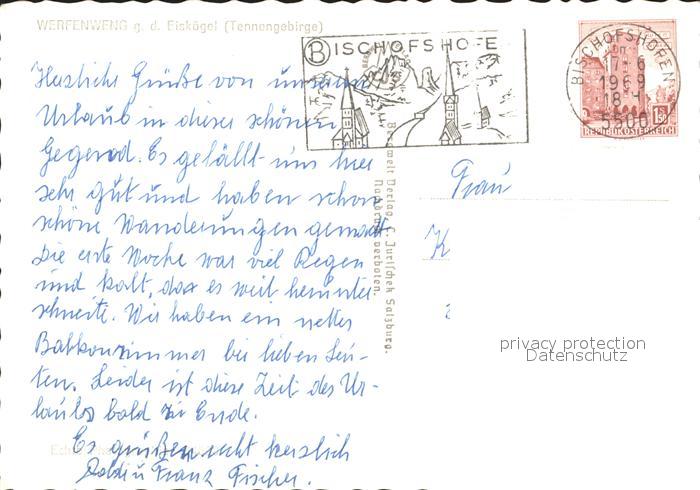 WERFENWENG g. d. Eiskögel (Tennengebirge)
BISCHOFSHOFE
BISCHOFSHOFEN
17-6
1969
18-
5500
1.50
REPUBLIK ÖSTERREICH
Herzliche Grüße von unserem
Urlaub in dieser schönen
Gegend. Es gefällt uns hier
sehr gut und haben schon
schöne Wanderungen gemacht
Die erste Woche war viel Regen
und kalt, das es weit herunter
schneite. Wir haben ein nettes
Balkonzimmer bei lieben Leu-
ten. Leider ist diese Zeit des Ur-
laubs bald zu Ende.
Es grüßen recht herzlich
u Franz Fischer.
Bergwelt Verlag, C. Jurischek Salzburg.
Nachdruck verboten.
Frau
K
privacy protection
Datenschutz